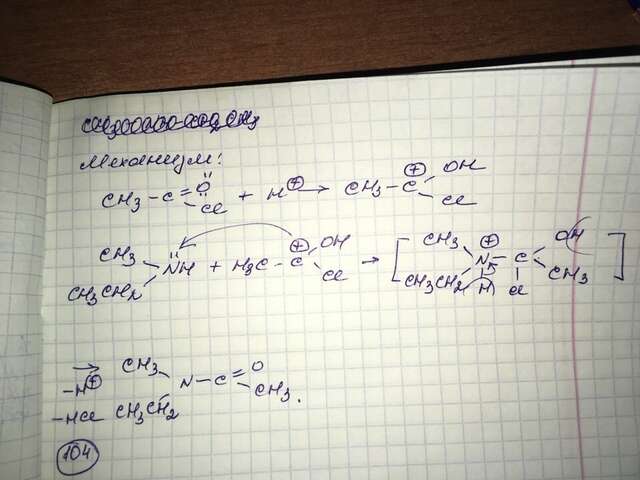 Механизм:
CH₃ – C = Ö Cl + H⊕ → CH₃ – C⊕ OH Cl
CH₃ CH₃CH₂ N̈H + H₃C – C⊕ OH Cl → [ CH₃ CH₃CH₂ N⊕ H – C OH Cl CH₃ ]
→ –H⊕ –HCl CH₃ CH₃CH₂ N – C = O CH₃.
104